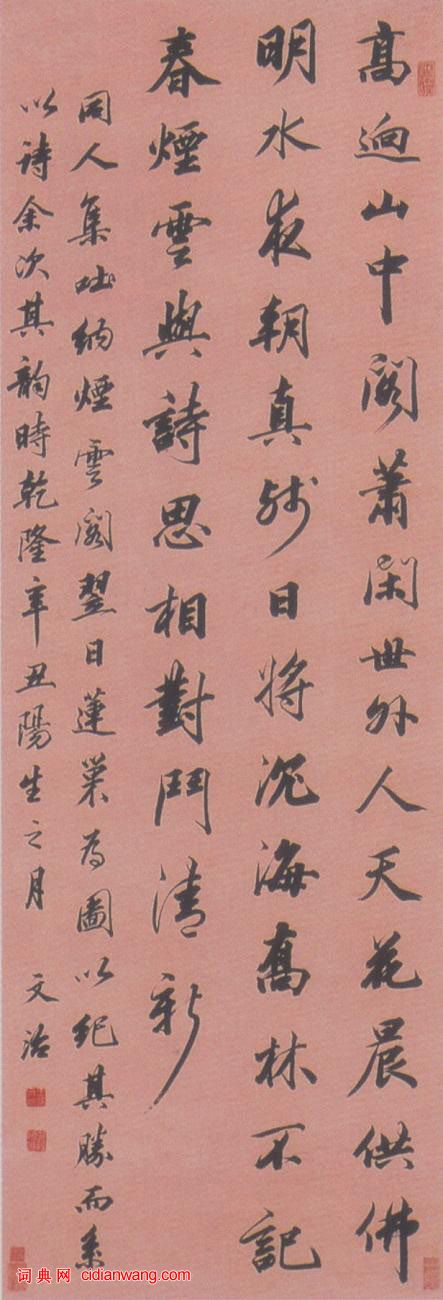 高迥山中阁萧闲世外人天花晨供佛
明水夜朝真残日将沉海高林不记
春煙雲與詩思相對鬥清新
同人集吐納煙雲阁翌日蓮巢為圖以纪其勝而系
以詩余次其韵時乾隆辛丑陽生之月 文治
词典网 cidianwang.com